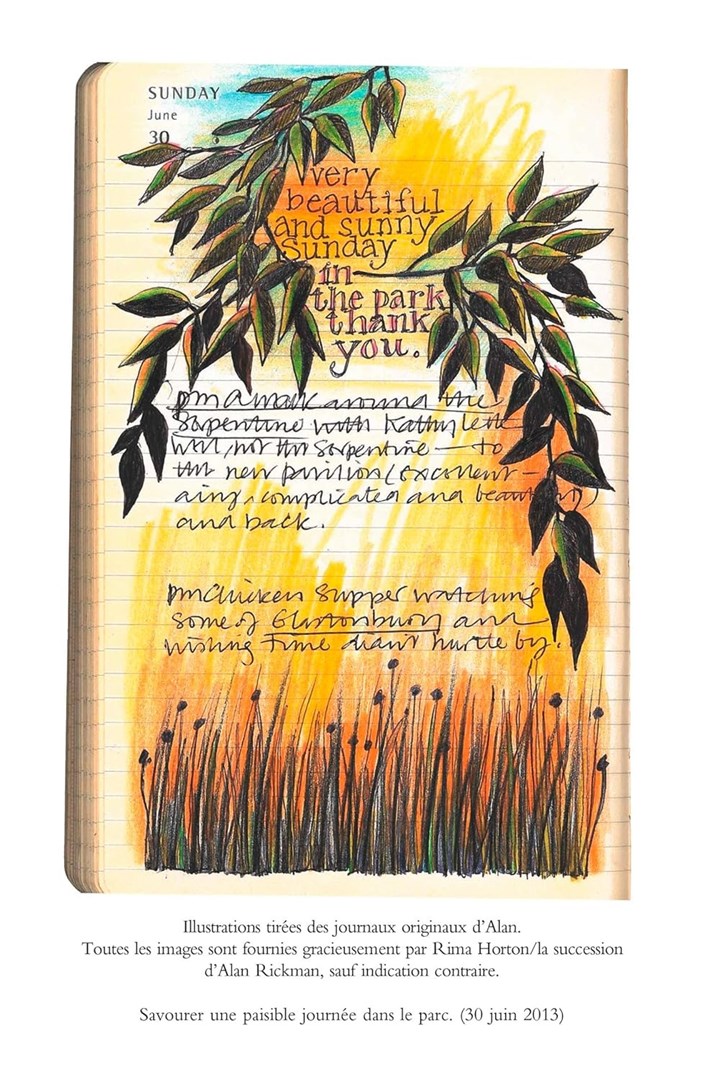 SUNDAY
June
30
very
beautiful
and sunny
Sunday
in
the park
thank
you.
pm A walk around the
Serpentine with Kathy Lette
well, not the Serpentine — to
the new pavilion (excellent –
airy, complicated and beautiful)
and back.
pm Chicken supper watching
some of Glastonbury and
wishing time didn't hurtle by.
Illustrations tirées des journaux originaux d'Alan.
Toutes les images sont fournies gracieusement par Rima Horton/la succession
d'Alan Rickman, sauf indication contraire.
Savourer une paisible journée dans le parc. (30 juin 2013)